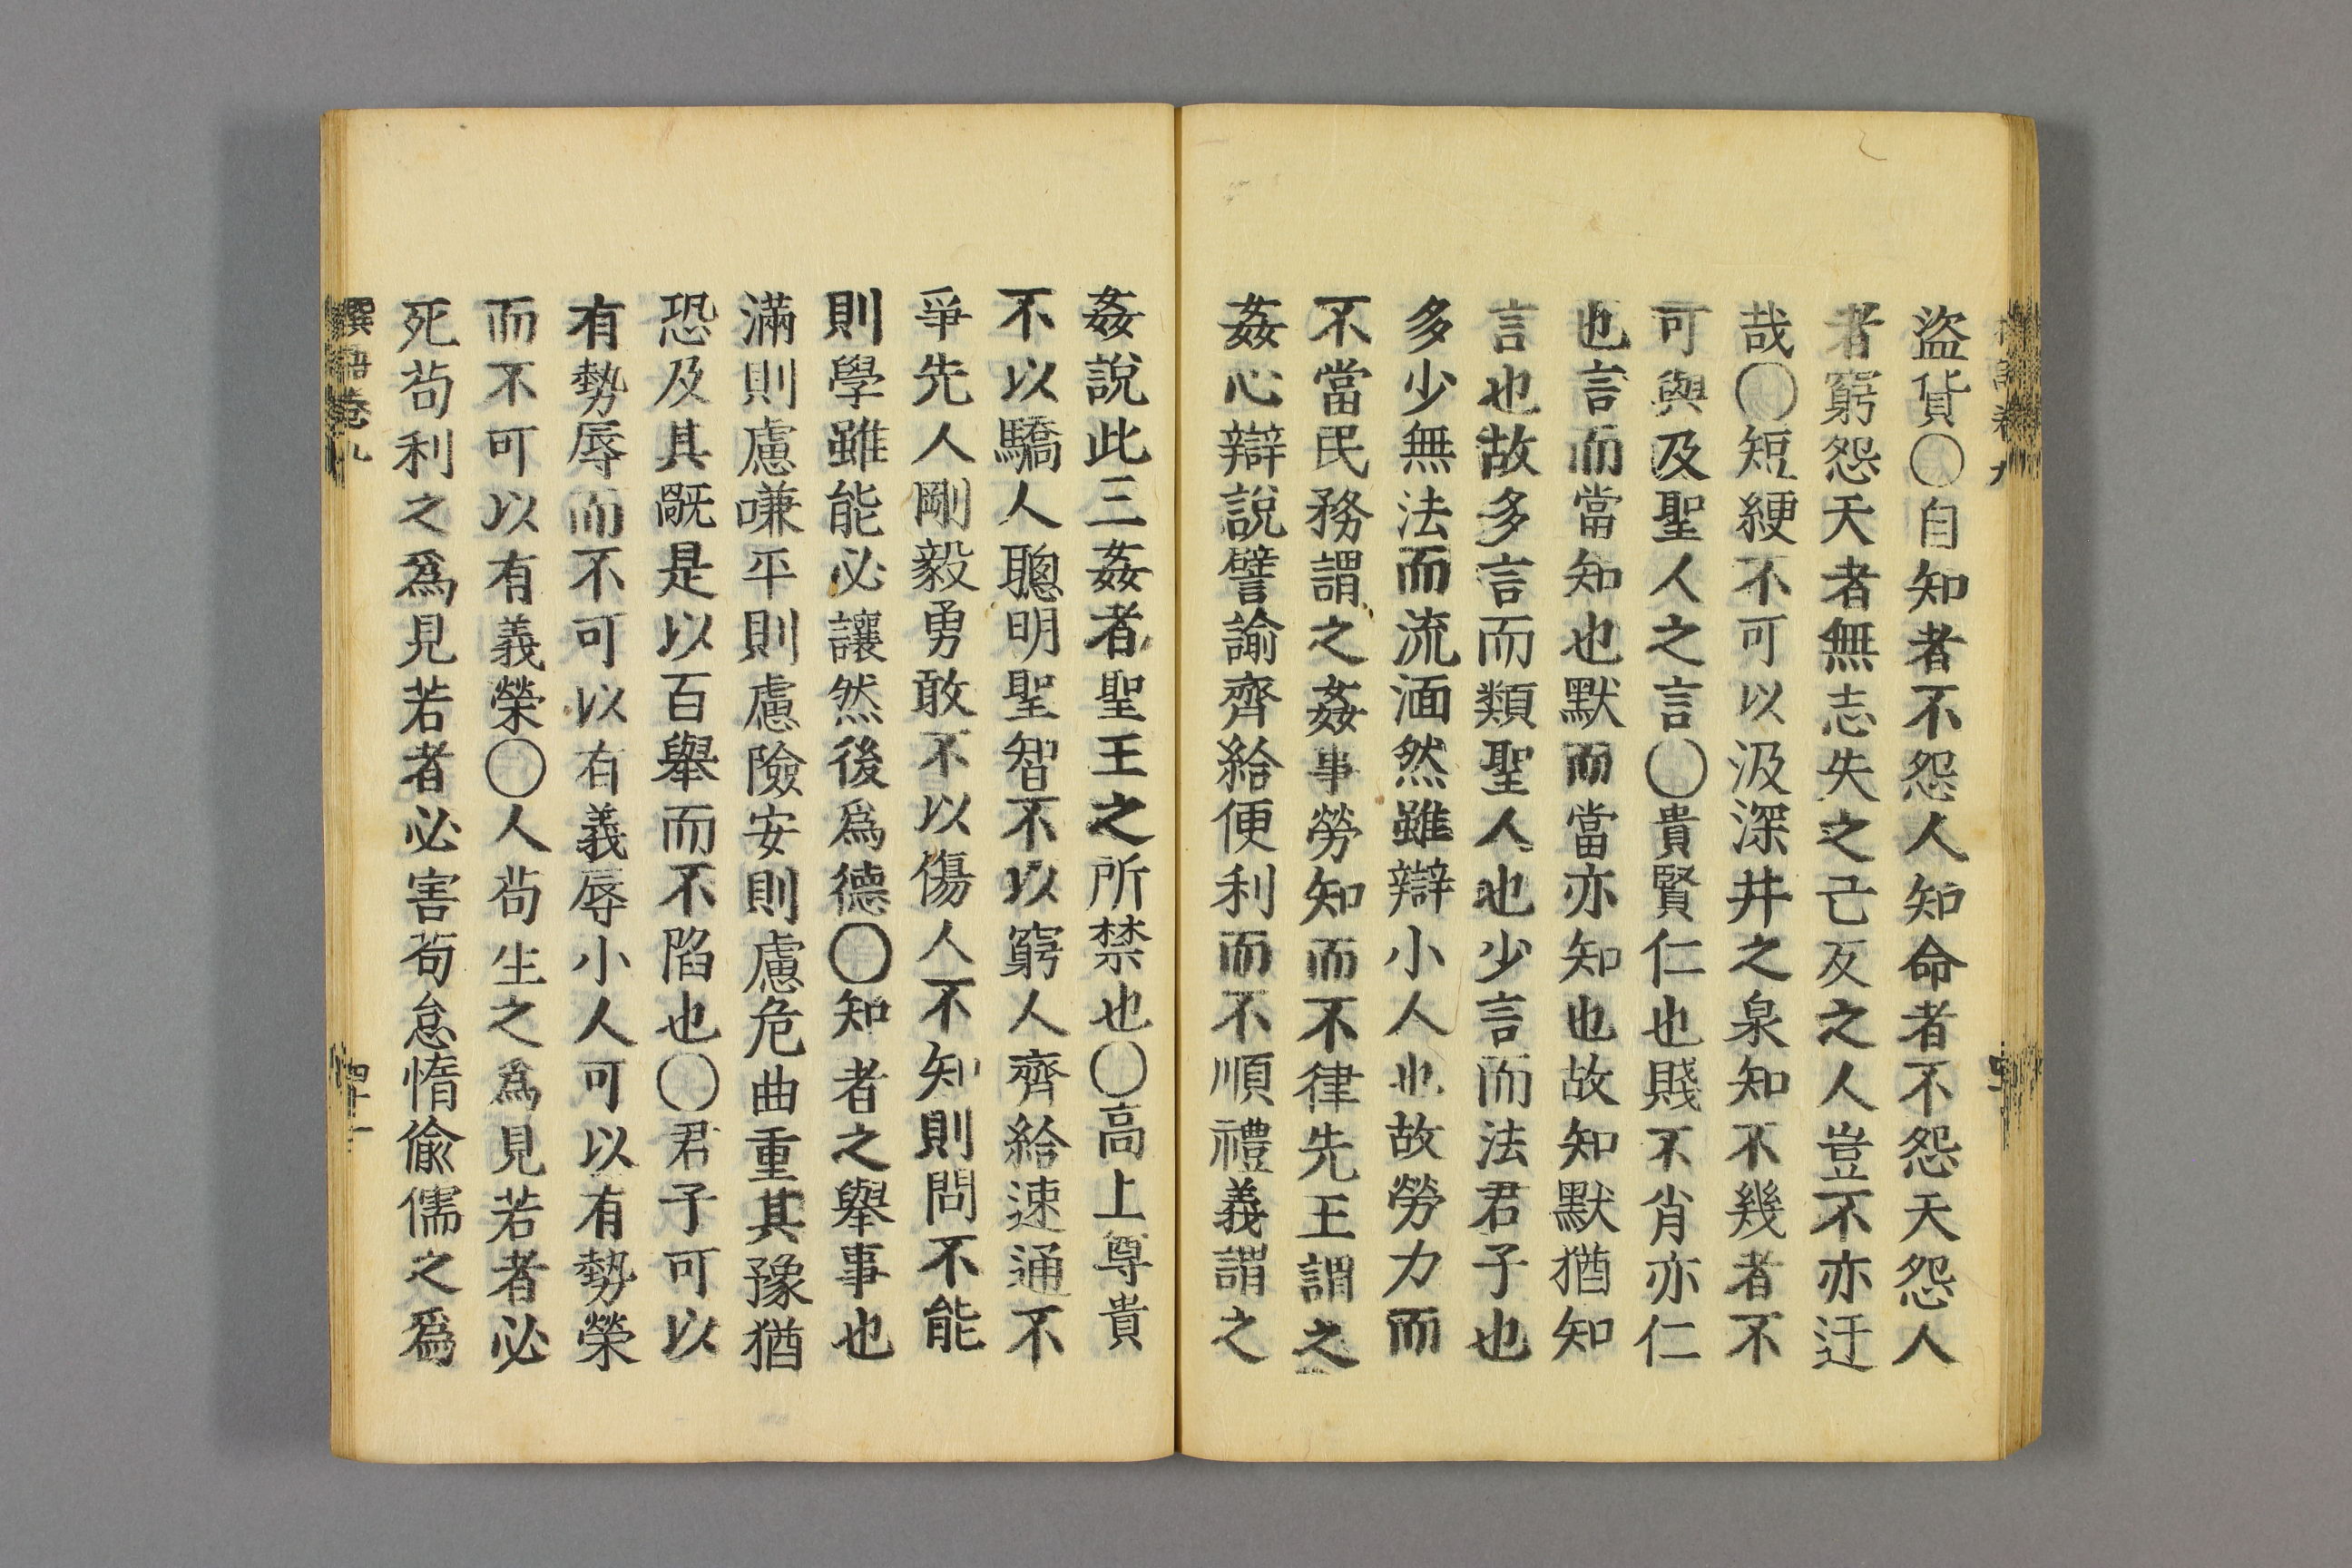 盜貨〇自知者不怨人知命者不怨天怨人
者窮怨天者無志失之己反之人豈不亦迂
哉〇短綆不可以汲深井之泉知不幾者不
可與及聖人之言〇貴賢仁也賤不肖亦仁
也言而當知也默而當亦知也故知默猶知
言也故多言而類聖人也少言而法君子也
多少無法而流湎然雖辯小人也故勞力而
不當民務謂之姦事勞知而不律先王謂之
姦心辯說譬諭齊給便利而不順禮義謂之
姦說此三姦者聖王之所禁也〇高上尊貴
不以驕人聰明聖智不以窮人齊給速通不
爭先人剛毅勇敢不以傷人不知則問不能
則學雖能必讓然後爲德〇知者之舉事也
滿則慮嗛平則慮險安則慮危曲重其豫猶
恐及其旤是以百舉而不陷也〇君子可以
有勢辱而不可以有義辱小人可以有勢榮
而不可以有義榮〇人茍生之爲見若者必
死茍利之爲見若者必害茍怠惰偷儒之爲
撰語卷九 四十一